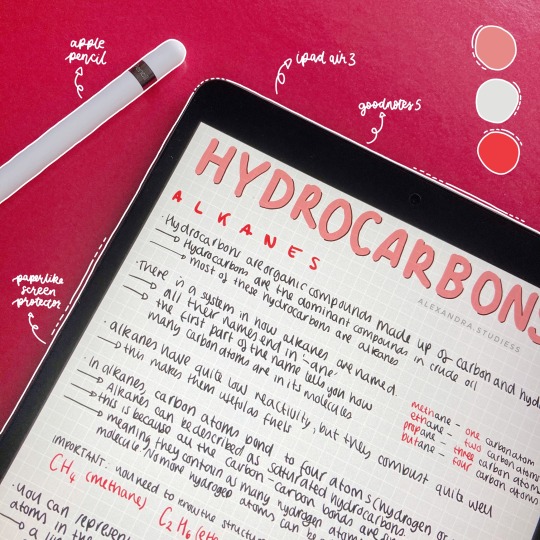 apple
pencil
ipad air 3
goodnotes 5
paperlike
screen
protector
HYDROCARBONS
ALEXANDRA.STUDIESS
ALKANES
· Hydrocarbons are organic compounds made up of carbon and hydr
→ Hydrocarbons are the dominant compounds in crude oil
→ most of these hydrocarbons are alkanes
· There is a system in how alkanes are named.
→ all their names end in '-ane'
→ the first part of the name tells you how
many carbon atoms are in its molecules
methane - one carbon atom
ethane - two carbon atoms
propane - three carbon atoms
butane - four carbon atoms
· alkanes have quite low reactivity, but they combust quite well
→ this makes them useful as fuels
· In alkanes, carbon atoms bond to four atoms (hydrogen or
→ Alkanes can be described as saturated hydrocarbons.
→ this is because all the carbon-carbon bonds are
→ meaning they contain as many hydrogen atoms
molecule. No more hydrogen atoms can be
IMPORTANT: you need to know the struct
CH₄ (methane) C₂H₆ (eth
· you can represent
atoms in the